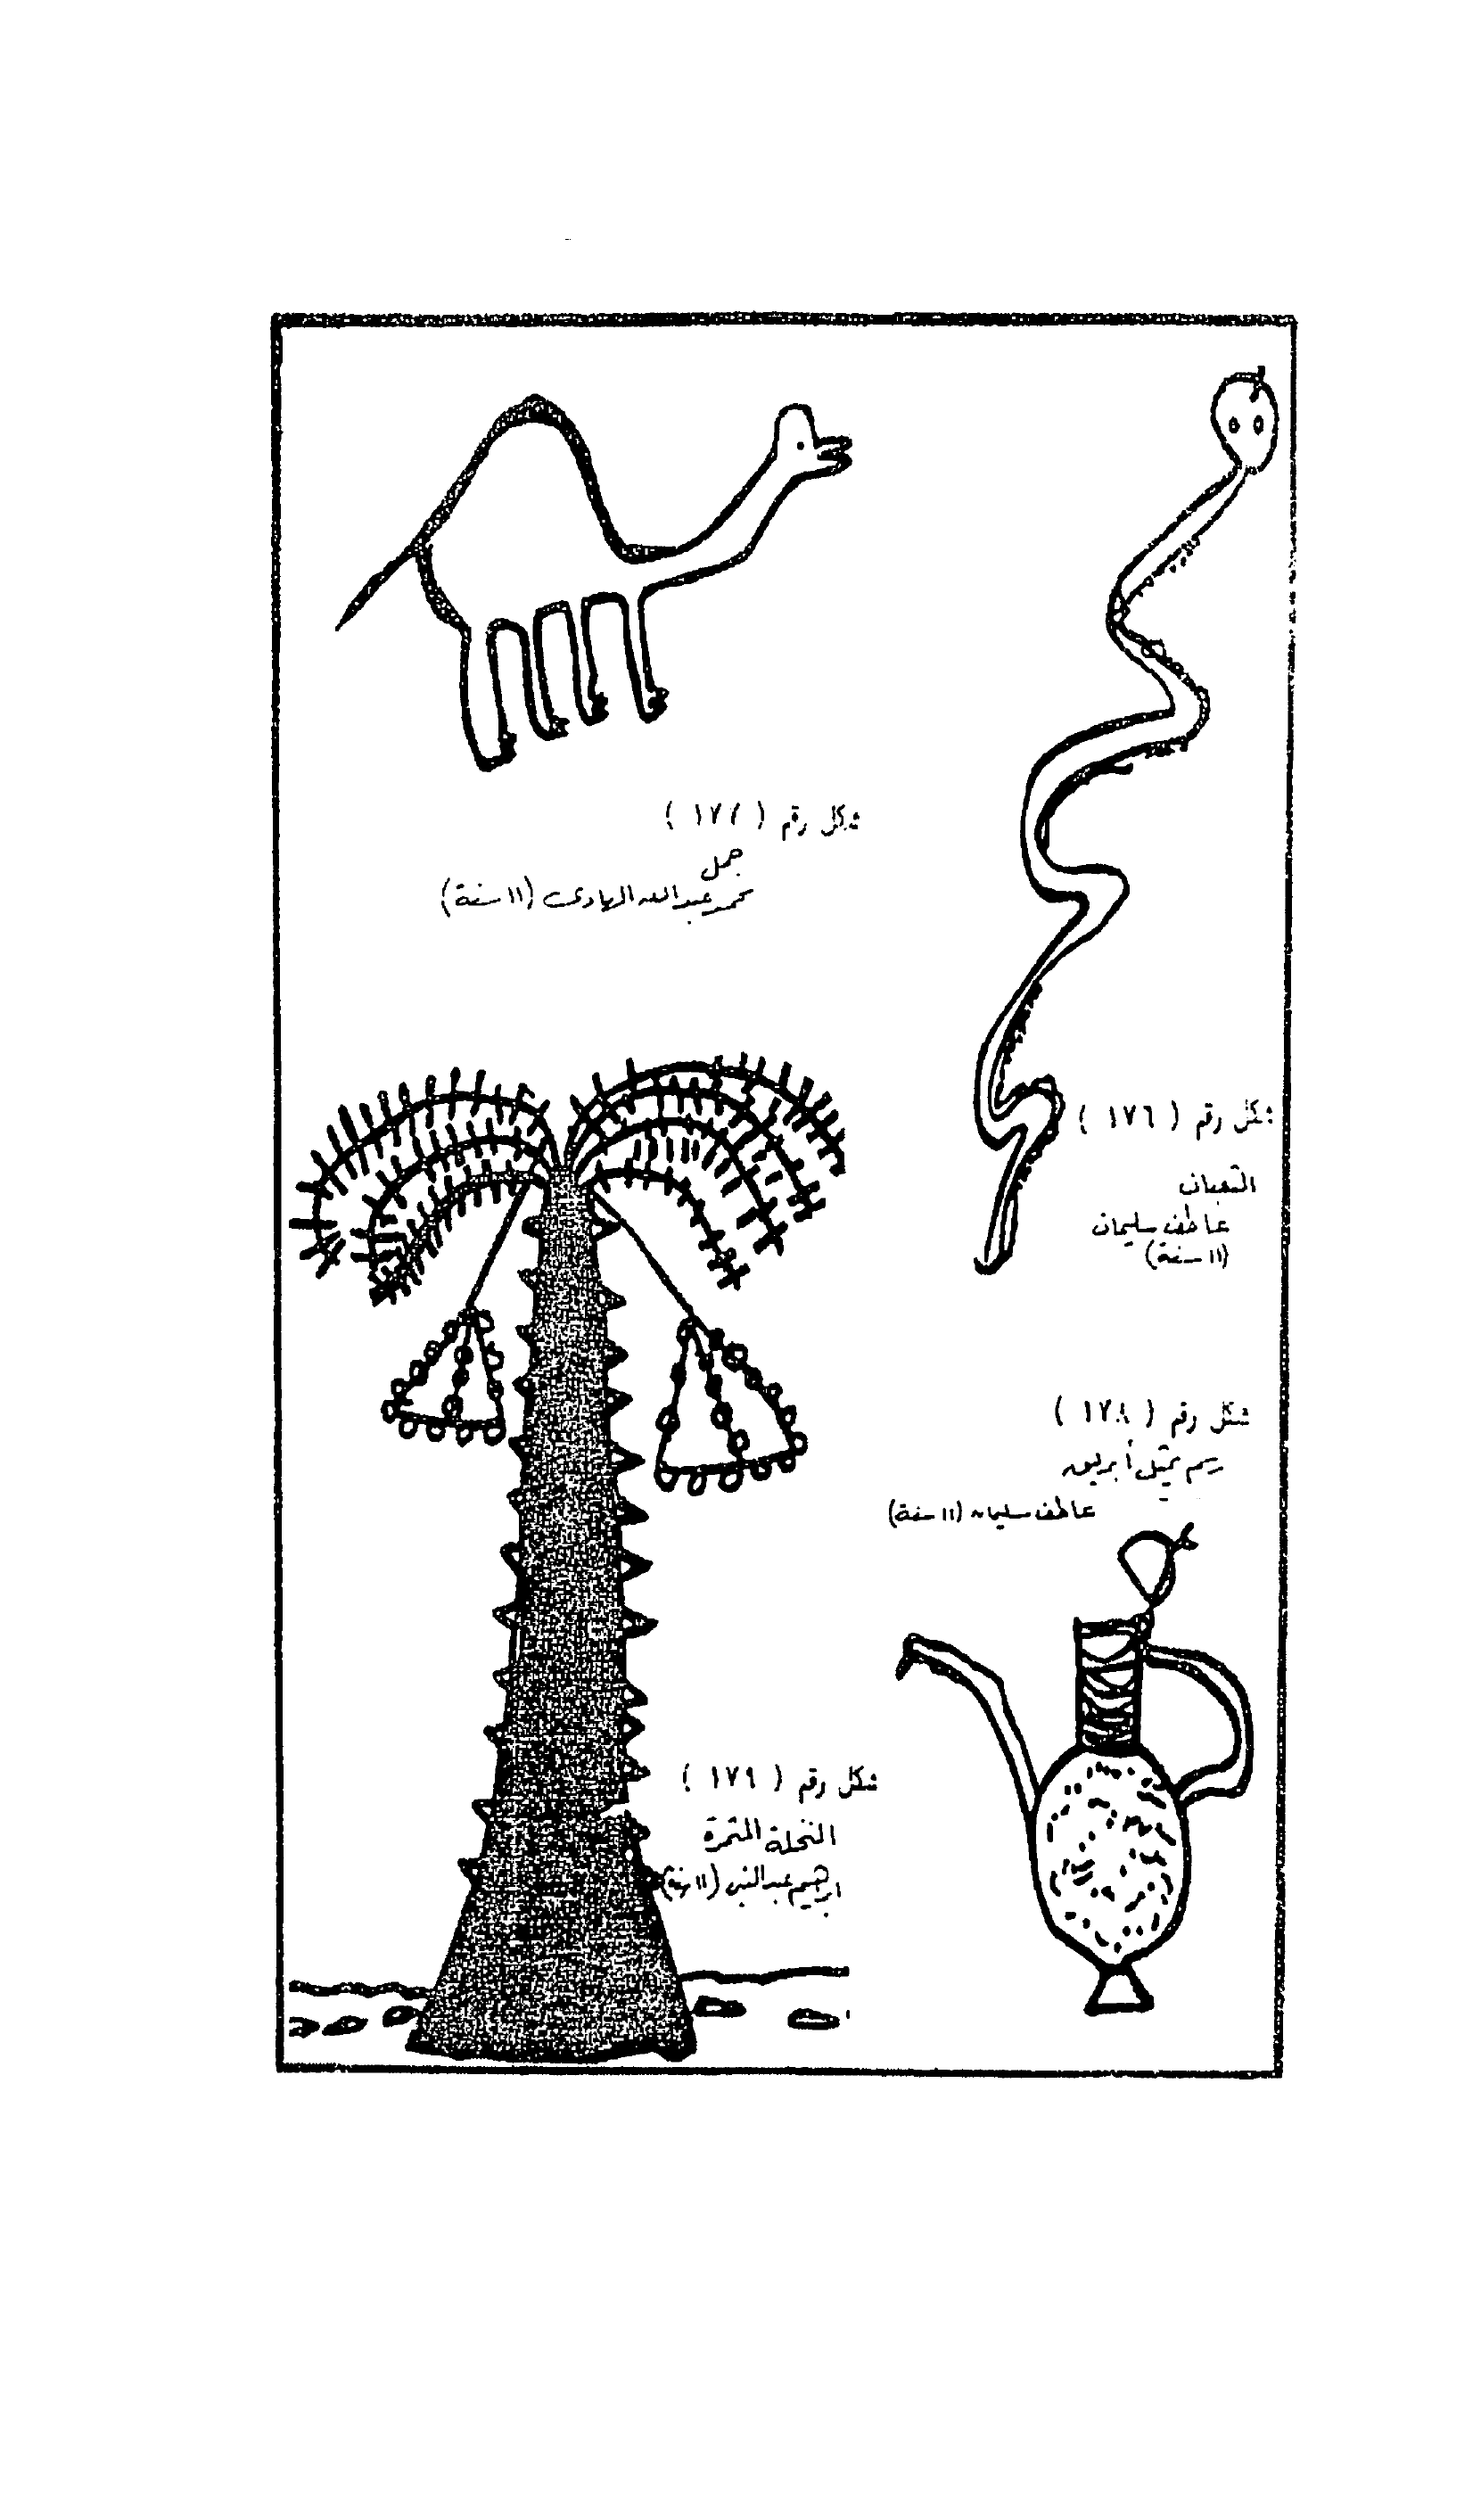 شكل رقم ( ١٧٦ )
الثعبان
عاطف سليمان
(١١ سنة)
شكل رقم ( ١٧٧ )
جمل
محمد عبدالله الهادى (١١ سنة)
شكل رقم ( ١٧٨ )
رسم يمثل أبريق
عاطف سليمان (١١ سنة)
شكل رقم ( ١٧٩ )
النخلة المثمرة
ابرهيم عبدالنبى (١١ سنة)